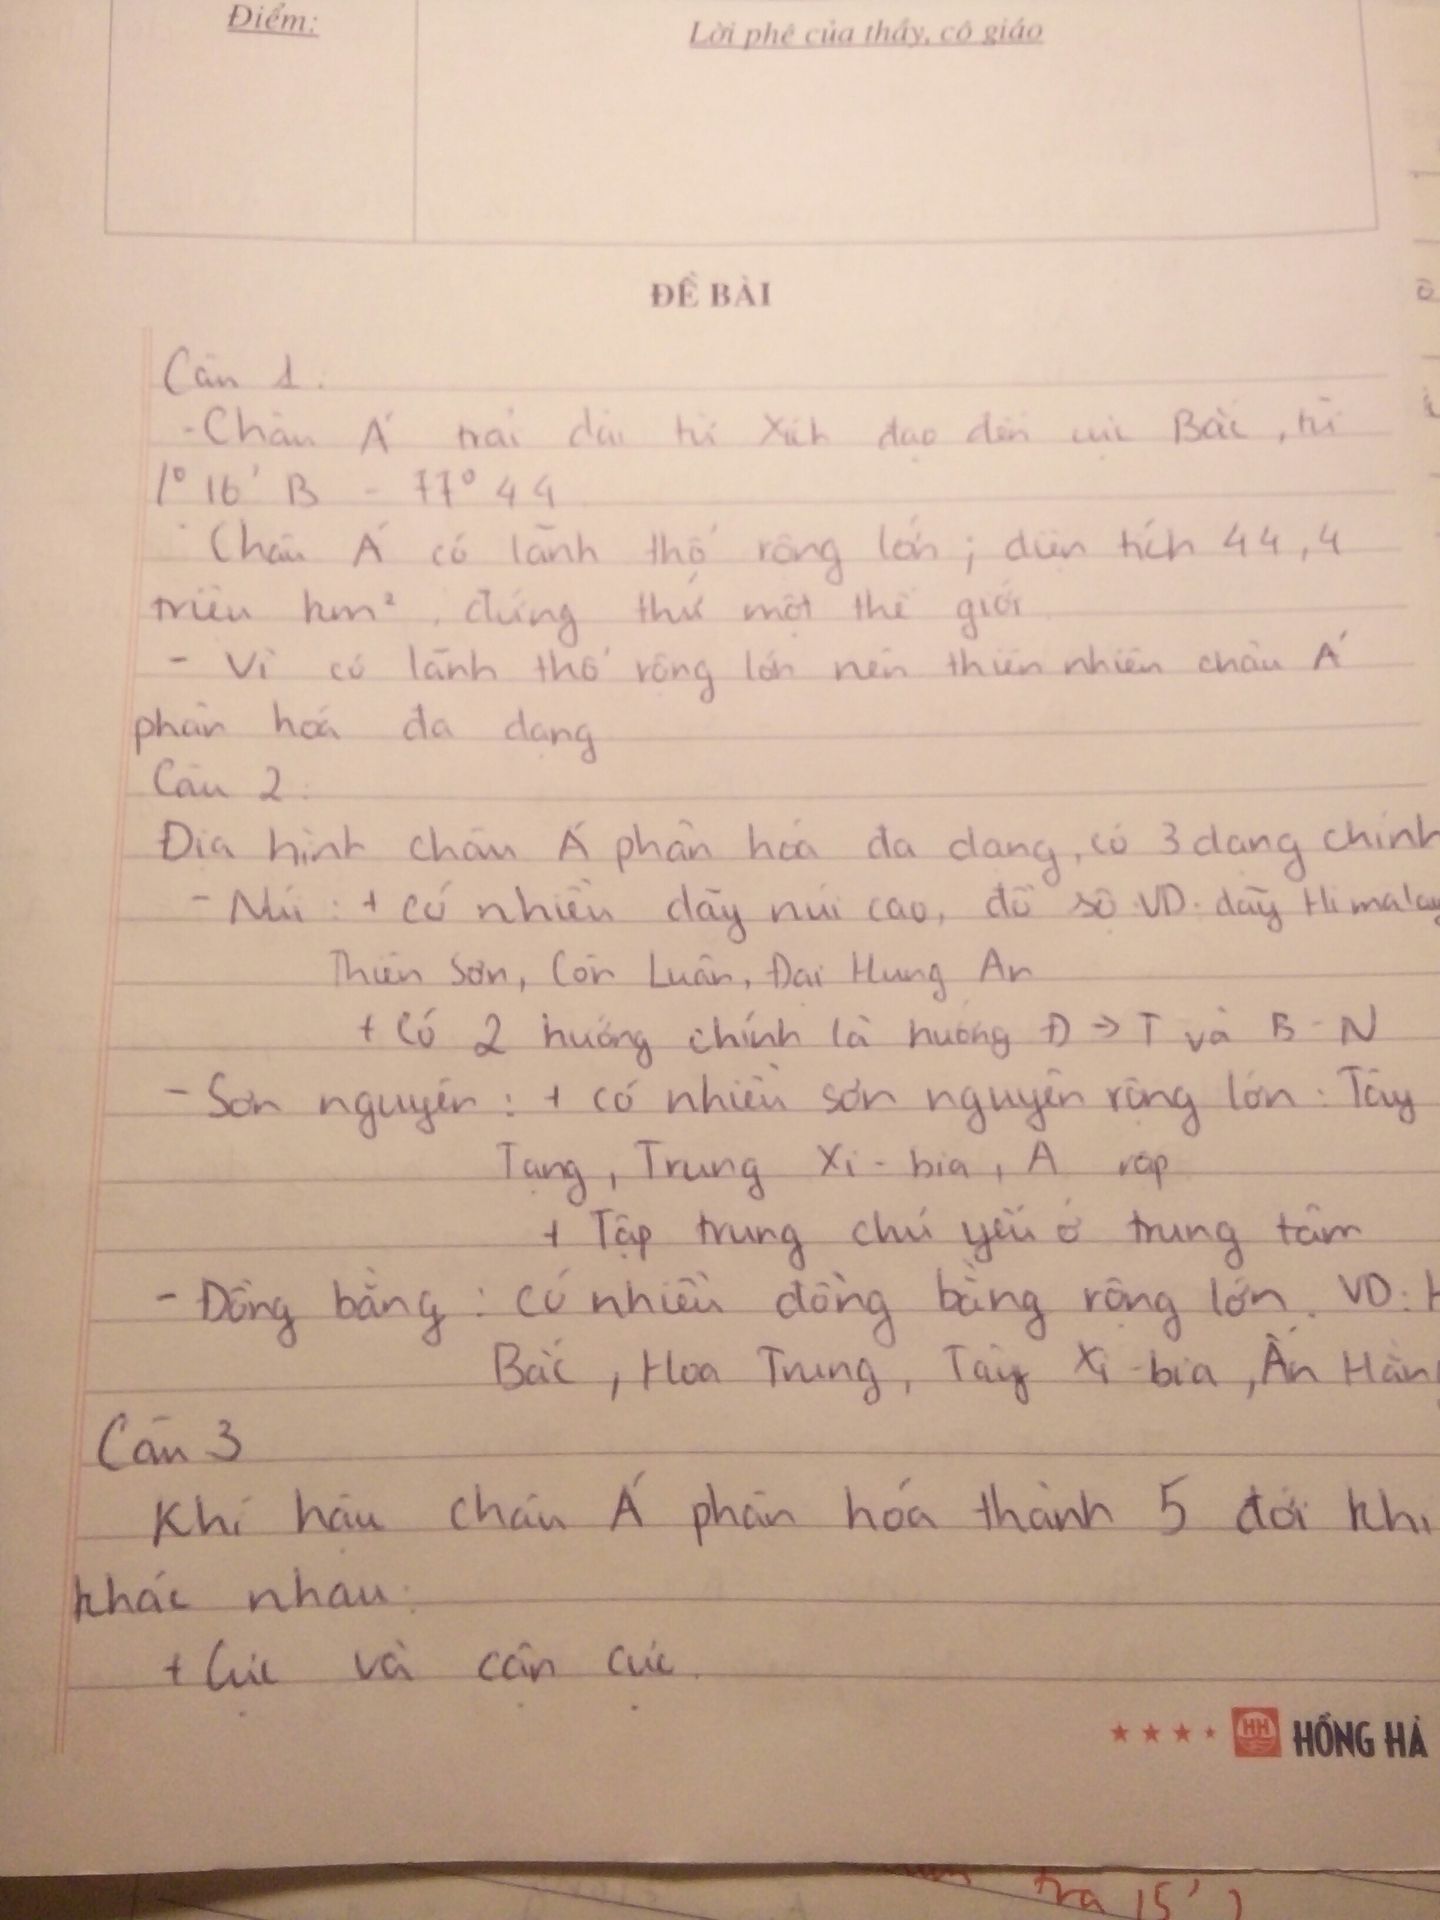 Điểm:
Lời phê của thầy, cô giáo
ĐỀ BÀI
Câu 1:
- Châu Á trải dài từ Xích đạo đến cực Bắc, từ
1° 16' B - 77° 44
- Châu Á có lãnh thổ rộng lớn; diện tích 44,4
triệu km², đứng thứ một thế giới
- Vì có lãnh thổ rộng lớn nên thiên nhiên châu Á
phân hoá đa dạng
Câu 2:
Địa hình châu Á phân hoá đa dạng, có 3 dạng chính
- Núi: + có nhiều dãy núi cao, đồ sộ. VD: dãy Himalay
Thiên Sơn, Côn Luân, Đại Hưng An
+ Có 2 hướng chính là hướng Đ → T và B - N
- Sơn nguyên: + có nhiều sơn nguyên rộng lớn: Tây
Tạng, Trung Xi-bia, A rap
+ Tập trung chủ yếu ở trung tâm
- Đồng bằng: có nhiều đồng bằng rộng lớn. VD:
Bắc, Hoa Trung, Tây Xi-bia, Ấn Hằng
Câu 3
Khí hậu châu Á phân hóa thành 5 đới khí
khác nhau:
+ Cực và cận cực.
HH HỒNG HÀ
tra 15')